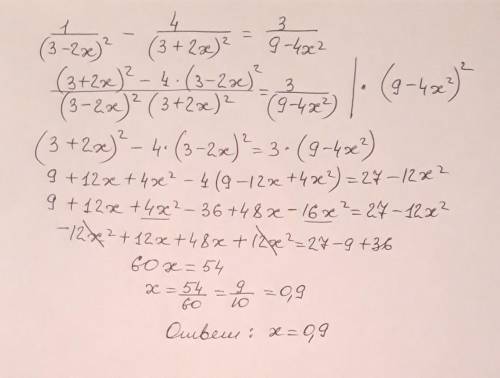 1/(3-2x)² - 4/(3+2x)² = 3/(9-4x²)
((3+2x)² - 4·(3-2x)²)/((3-2x)² (3+2x)²) = 3/(9-4x²) | · (9-4x²)²
(3+2x)² - 4·(3-2x)² = 3·(9-4x²)
9 + 12x + 4x² - 4(9-12x+4x²) = 27 - 12x²
9 + 12x + 4x² - 36 + 48x - 16x² = 27 - 12x²
-12x² + 12x + 48x + 12x² = 27 - 9 + 36
60x = 54
x = 54/60 = 9/10 = 0,9
Ответ: x = 0,9